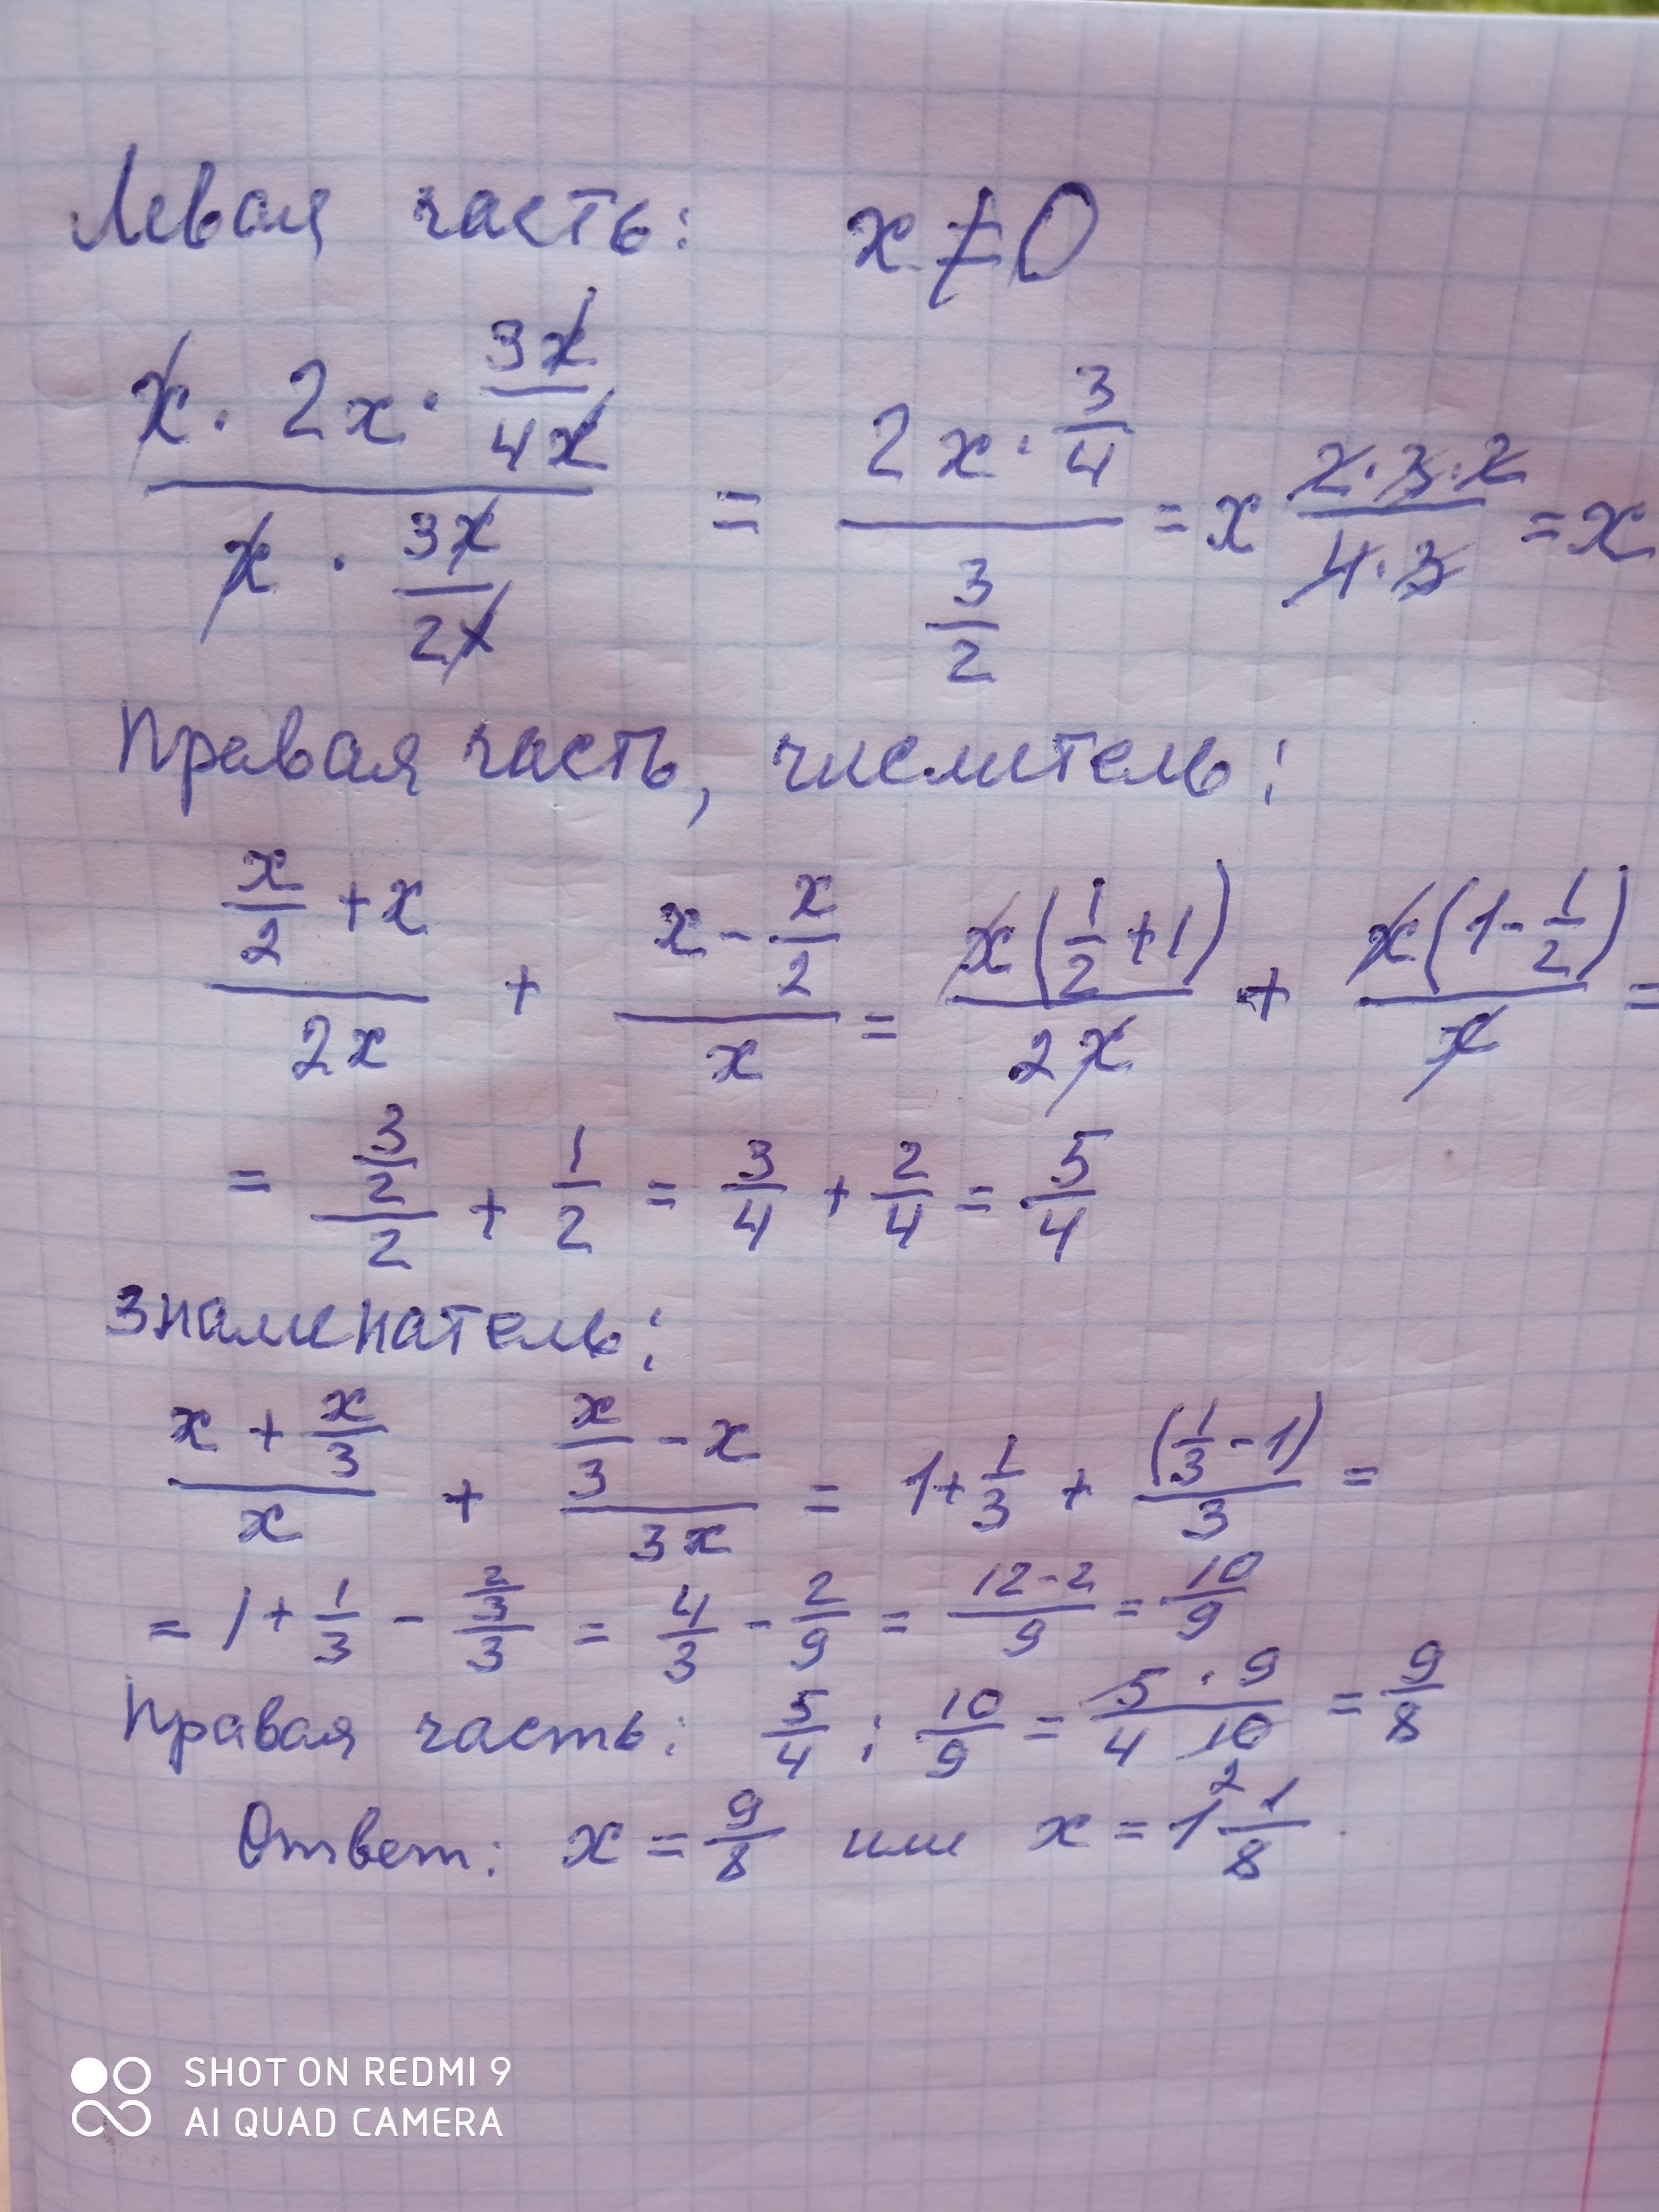 Левая часть: x ≠ 0
(x · 2x · 3x/4x)/(x · 3x/2x) = (2x · 3/4)/(3/2) = x (2·3·2)/(4·3) = x
Правая часть, числитель:
(x/2 + x)/2x + (x - x/2)/x = x(1/2 + 1)/2x + x(1 - 1/2)/x =
= (3/2)/2 + 1/2 = 3/4 + 2/4 = 5/4
Знаменатель:
(x + x/3)/x + (x/3 - x)/3x = 1 + 1/3 + (1/3 - 1)/3 =
= 1 + 1/3 - (2/3)/3 = 4/3 - 2/9 = (12 - 2)/9 = 10/9
Правая часть: 5/4 : 10/9 = (5 · 9)/(4 10) = 9/8
2
Ответ: x = 9/8 или x = 1 1/8.
SHOT ON REDMI 9
AI QUAD CAMERA